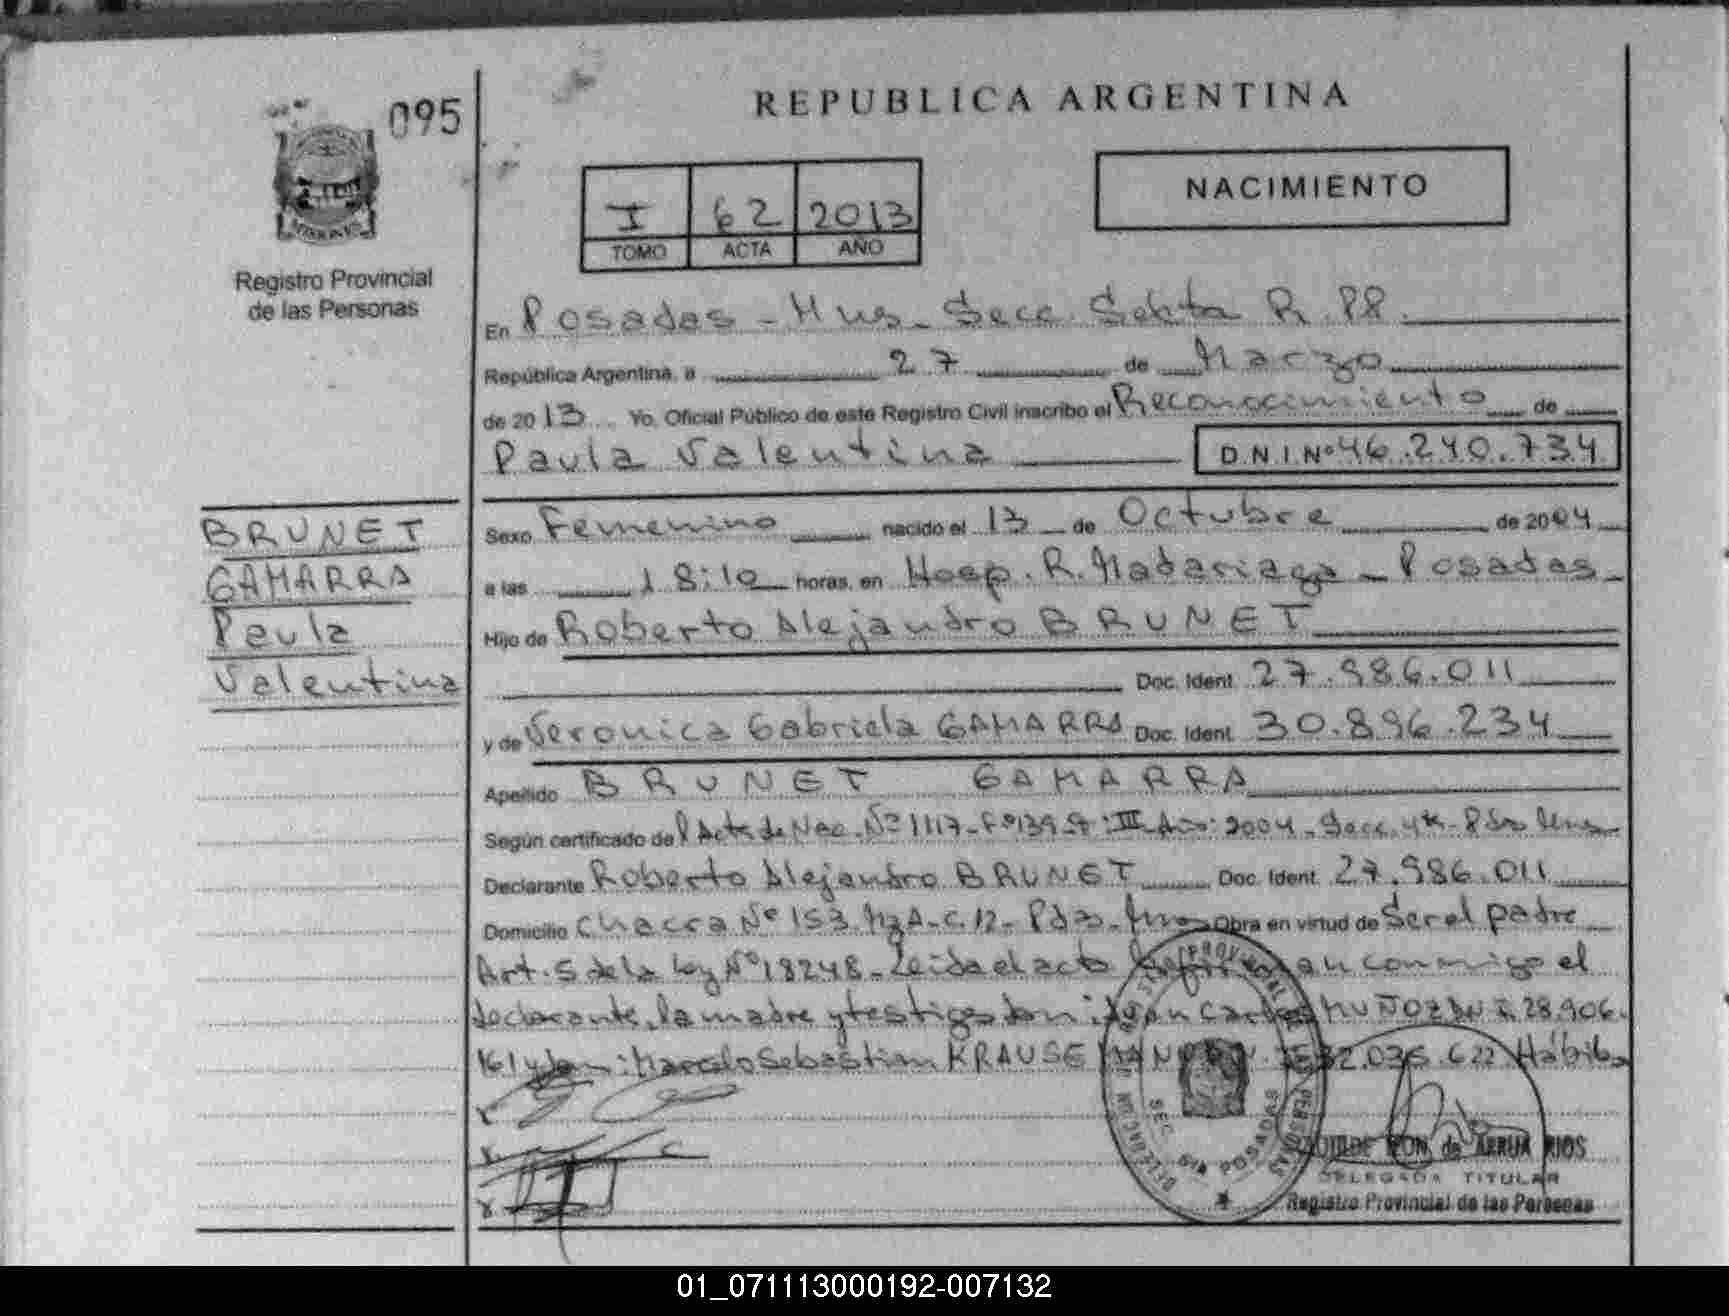 095
REPUBLICA ARGENTINA
NACIMIENTO
I 62 2013
TOMO ACTA AÑO
MISIONES
Registro Provincial
de las Personas
En Posadas - Mnes. Secc. Sexta R. PP.
República Argentina, a 27 de Marzo
de 2013 Yo, Oficial Público de este Registro Civil inscribo el Reconocimiento de
Paula Valentina D.N.I.Nº 46.240.734
BRUNET
GAMARRA
Paula
Valentina
Sexo Femenino nacido el 13 de Octubre de 2004
a las 18:10 horas, en Hosp. R. Madariaga - Posadas
Hijo de Roberto Alejandro BRUNET
Doc. Ident. 27.986.011
y de Veronica Gabriela GAMARRA Doc. Ident. 30.896.234
Apellido BRUNET GAMARRA
Según certificado del Acta de Nac. Nº 1117 - Fº 139 - Tº: III Año: 2004 - Secc. 4ta - Pdas Mnes
Declarante Roberto Alejandro BRUNET Doc. Ident. 27.986.011
Domicilio Chacra Nº 153 Mz A - C. 12 - Pdas. Mnes Obra en virtud de Ser el padre
Art. 5 de la Ley Nº 18248 - Leida el acta la firman conmigo el
declarante, la madre y testigos Don: Juan Carlos MUÑOZ DNI 28.906.
161 y Don: Marcelo Sebastian KRAUSE 32.035.622 Hábiles
REGISTRO PROVINCIAL DE LAS PERSONAS
DELEGACION
SEC. 6ta POSADAS
de ARRUA RIOS
DELEGADA TITULAR
Registro Provincial de las Personas
01_071113000192-007132